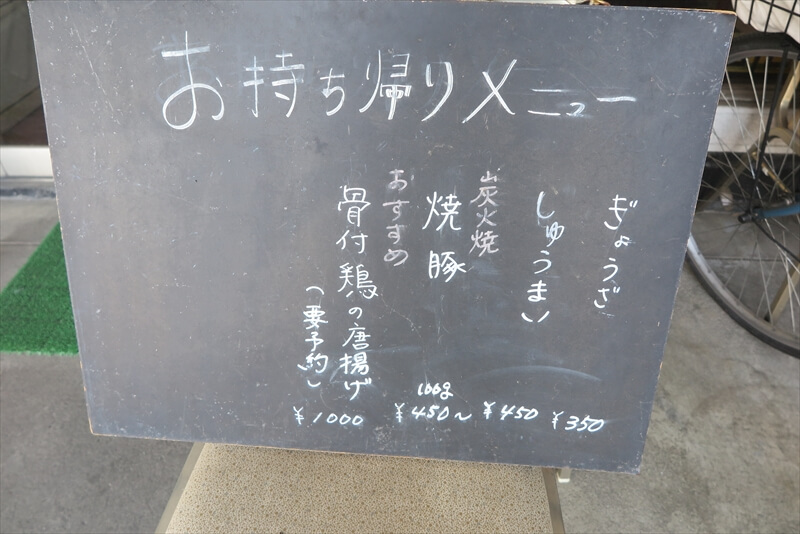 お持ち帰りメニュー
ぎょうざ
¥350
しゅうまい
¥450
炭火焼
焼豚
100g
¥450~
おすすめ
骨付鶏の唐揚げ
(要予約)
¥1000